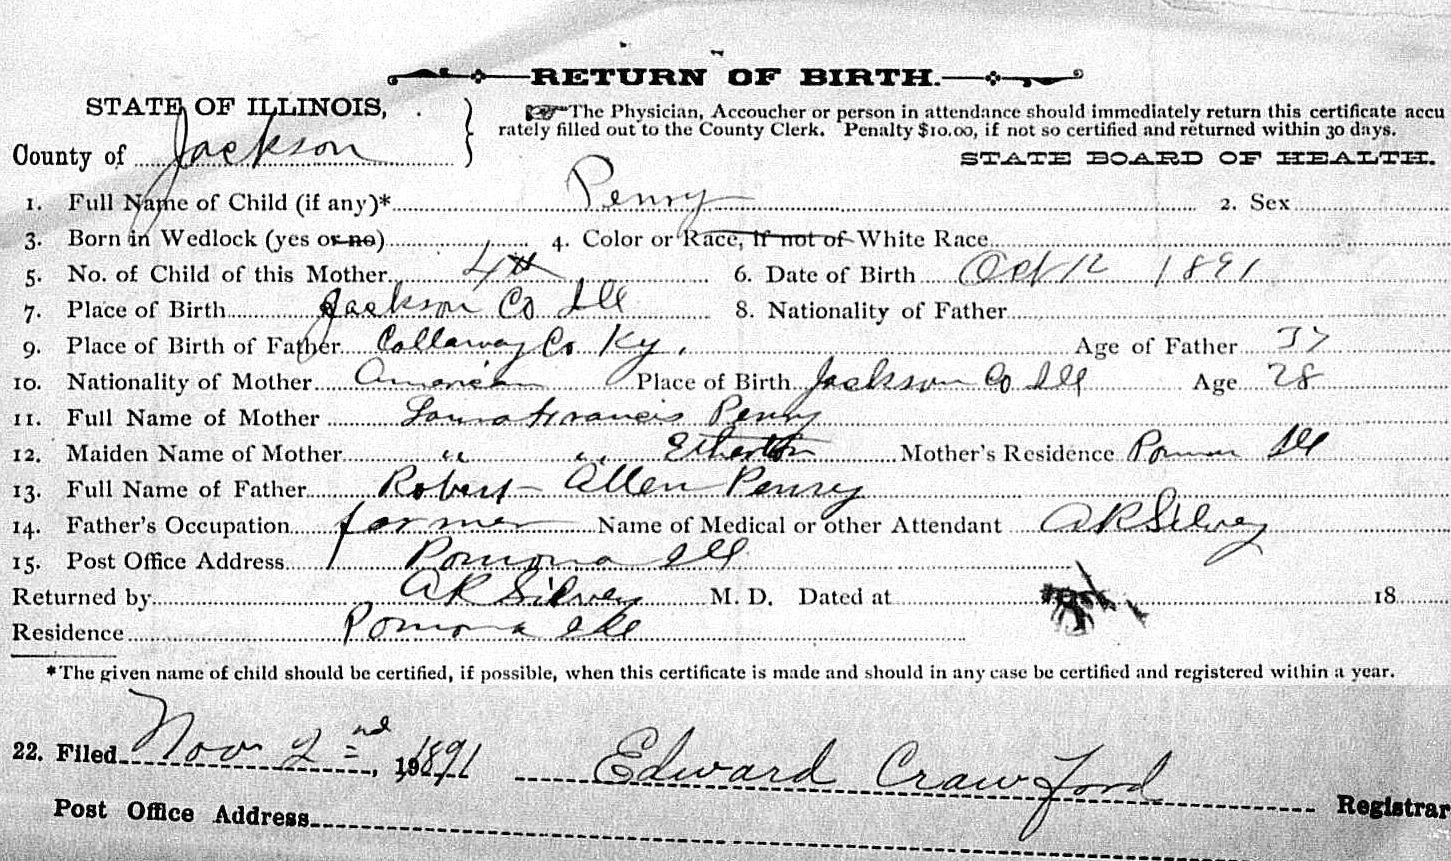 RETURN OF BIRTH.
STATE OF ILLINOIS,
County of Jackson
The Physician, Accoucher or person in attendance should immediately return this certificate accu
rately filled out to the County Clerk. Penalty $10.00, if not so certified and returned within 30 days.
STATE BOARD OF HEALTH.
1. Full Name of Child (if any)* Penry 2. Sex
3. Born in Wedlock (yes or no) 4. Color or Race, if not of White Race
5. No. of Child of this Mother 4th 6. Date of Birth Oct 12 1891
7. Place of Birth Jackson Co Ill 8. Nationality of Father
9. Place of Birth of Father Callaway Co Ky. Age of Father 37
10. Nationality of Mother American Place of Birth Jackson Co Ill Age 28
11. Full Name of Mother Laura Francis Penry
12. Maiden Name of Mother " " Etherton Mother's Residence Pomona Ill
13. Full Name of Father Robert Allen Penry
14. Father's Occupation farmer Name of Medical or other Attendant A R Silvey
15. Post Office Address Pomona Ill
Returned by A R Silvey M. D. Dated at 18
Residence Pomona Ill
*The given name of child should be certified, if possible, when this certificate is made and should in any case be certified and registered within a year.
22. Filed Nov 2nd, 1891 Edward Crawford Registrar
Post Office Address